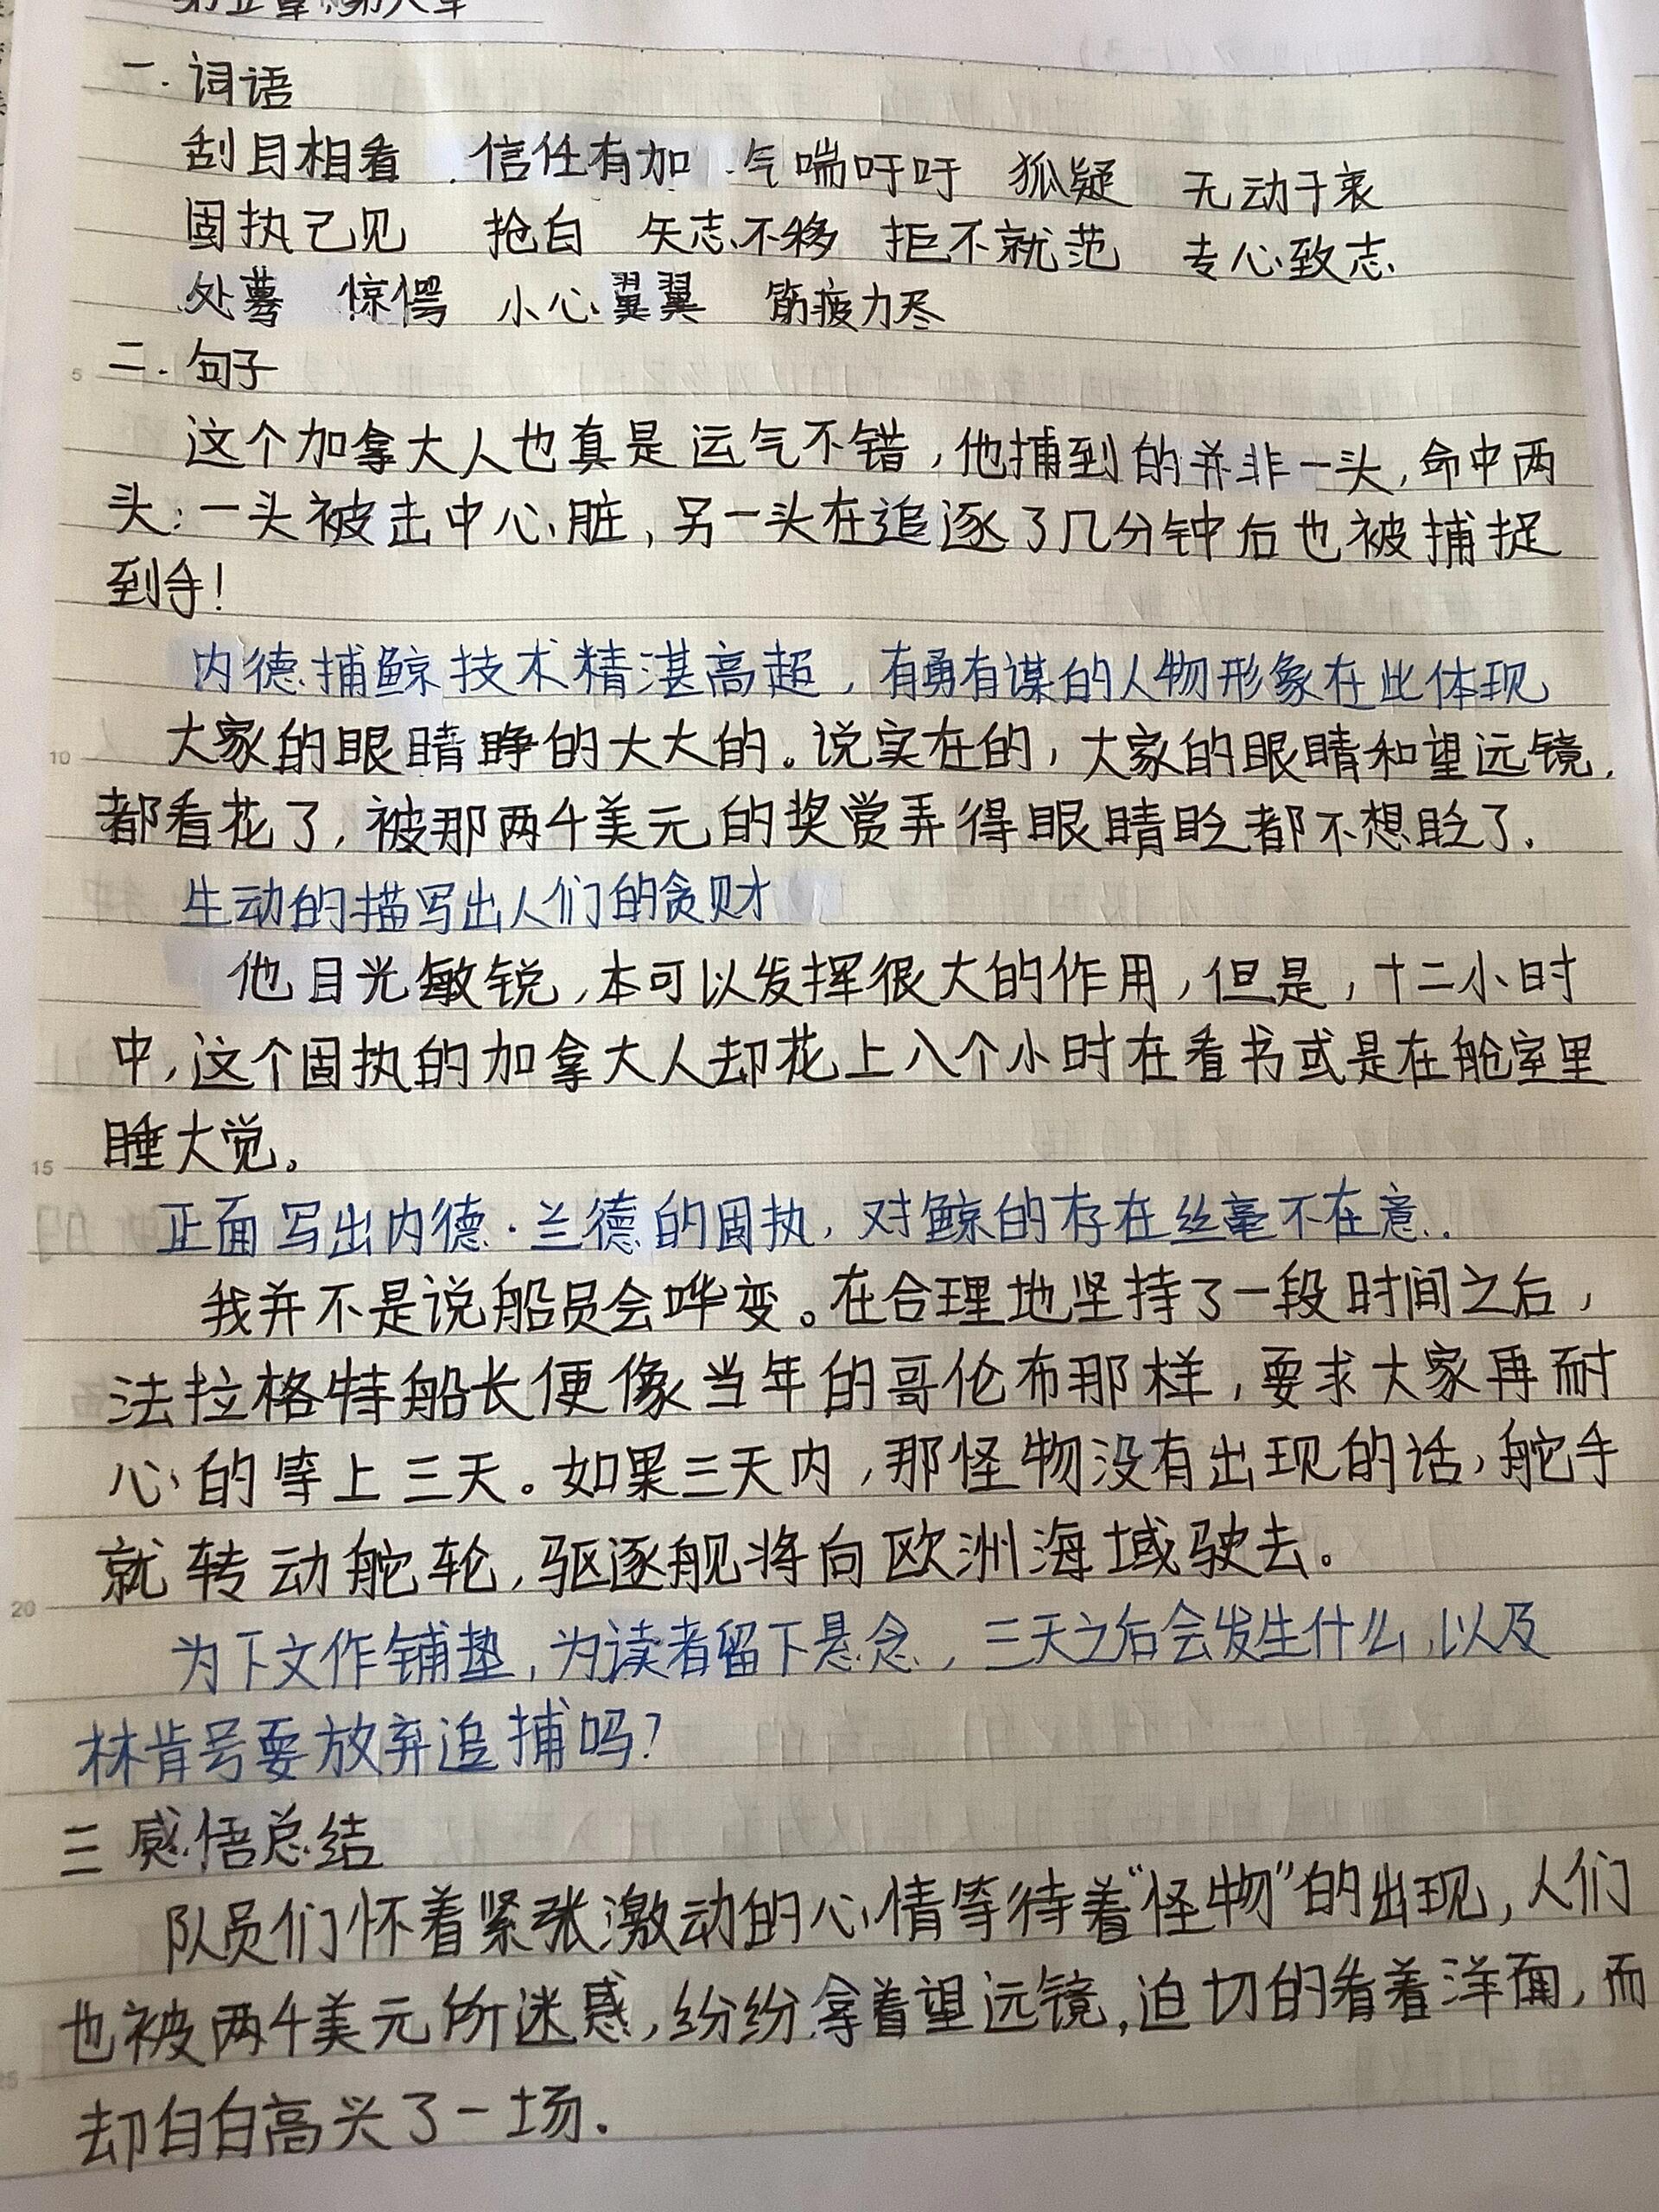 第五章,第六章
一.词语
刮目相看 信任有加 气喘吁吁 狐疑 无动于衷
固执己见 抢白 矢志不移 拒不就范 专心致志
惊愕 小心翼翼 筋疲力尽
二.句子
这个加拿大人也真是运气不错,他捕到的并非一头,命中两
头:一头被击中心脏,另一头在追逐了几分钟后也被捕捉
到手!
内德捕鲸技术精湛高超,有勇有谋的人物形象在此体现
大家的眼睛睁的大大的。说实在的,大家的眼睛和望远镜,
都看花了,被那两千美元的奖赏弄得眼睛眨都不想眨了.
生动的描写出人们的贪财
他目光敏锐,本可以发挥很大的作用,但是,十二小时
中,这个固执的加拿大人却花上八个小时在看书或是在舱室里
睡大觉。
正面写出内德·兰德的固执,对鲸的存在丝毫不在意..
我并不是说船员会哗变。在合理地坚持了一段时间之后,
法拉格特船长便像当年的哥伦布那样,要求大家再耐
心的等上三天。如果三天内,那怪物没有出现的话,舵手
就转动舵轮,驱逐舰将向欧洲海域驶去。
为下文作铺垫,为读者留下悬念,三天之后会发生什么,以及
林肯号要放弃追捕吗?
三 感悟总结
队员们怀着紧张激动的心情等待着“怪物”的出现,人们
也被两千美元所迷惑,纷纷拿着望远镜,迫切的看着洋面,而
却白白高兴了一场.